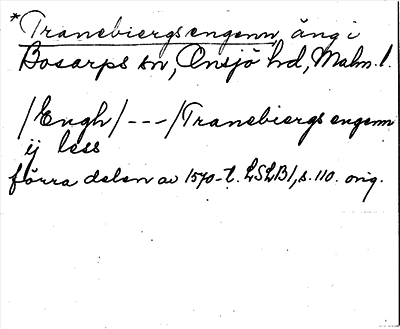 *Tranebiergsengenn, äng i
Bosarps sn, Onsjö hd, Malm. l.
/Engh/ --- /Tranebiergs engenn
ij less
förra delen av 1570-t. LSLB1, s. 110. orig.